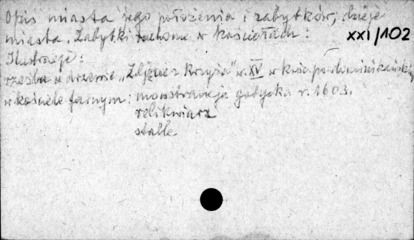 Opis miasta jego położenia i zabytków, dzieje
miasta. Zabytki ruchome w kościołach:
XXI/102
Ilustracje:
rzeźba w drzewie "Zdjęcie z Krzyża" w. XV w kości. podominikańskim,
w kościele farnym: monstrancja gotycka r. 1603.
relikwiarz
stalle